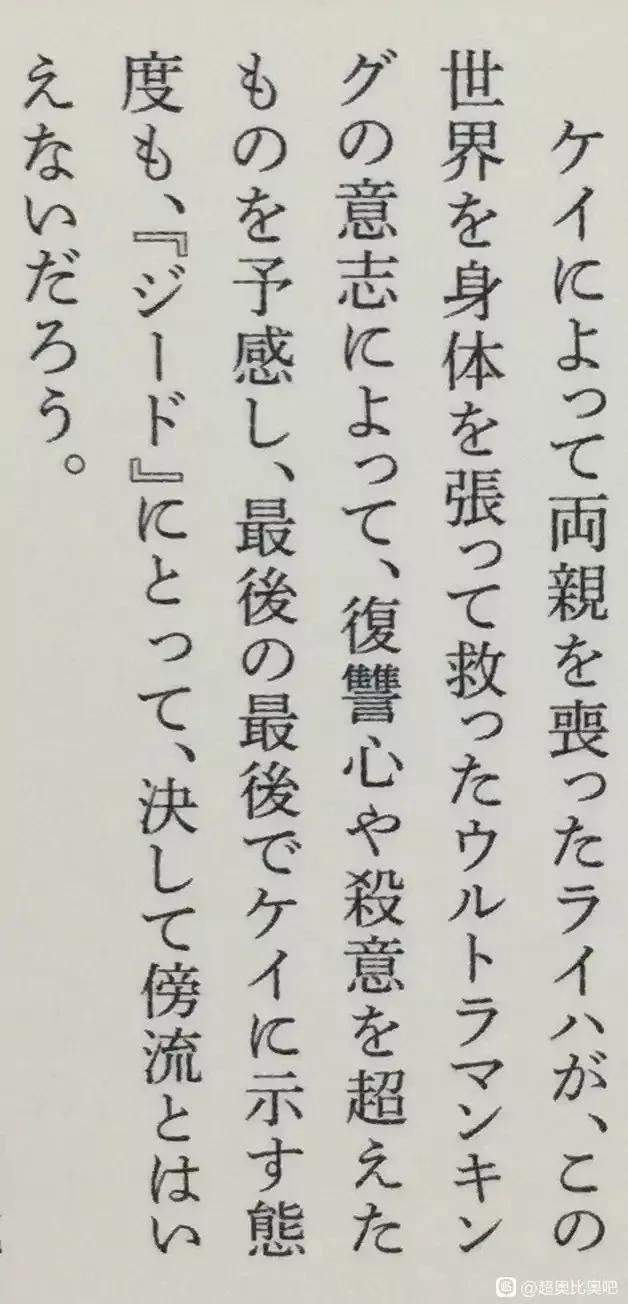 ケイによって両親を喪ったライハが、この
世界を身体を張って救ったウルトラマンキン
グの意志によって、復讐心や殺意を超えた
ものを予感し、最後の最後でケイに示す態
度も、『ジード』にとって、決して傍流とはい
えないだろう。
@超奥比奥吧